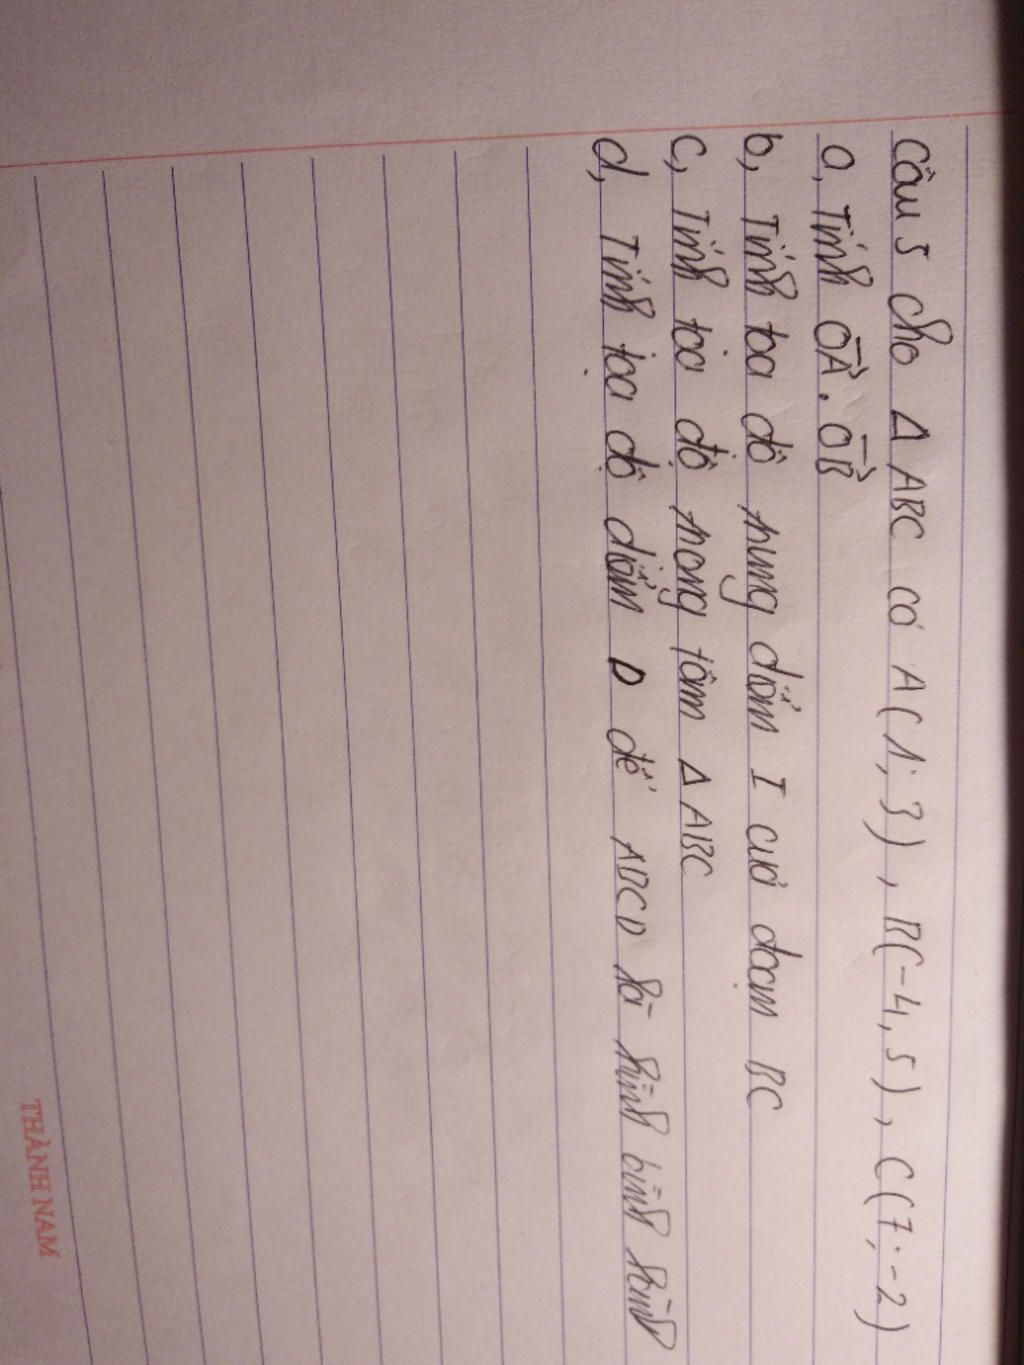 Câu 5 cho Δ ABC có A(1; 3), B(-4, 5), C(7; -2)
a, Tính OA . OB
b, Tính toa dô trung điểm I của đoạn BC
c, Tính tọa độ trong tâm Δ ABC
d, Tính tọa dộ điểm D để ABCD là hình bình hành
THÀNH NAM